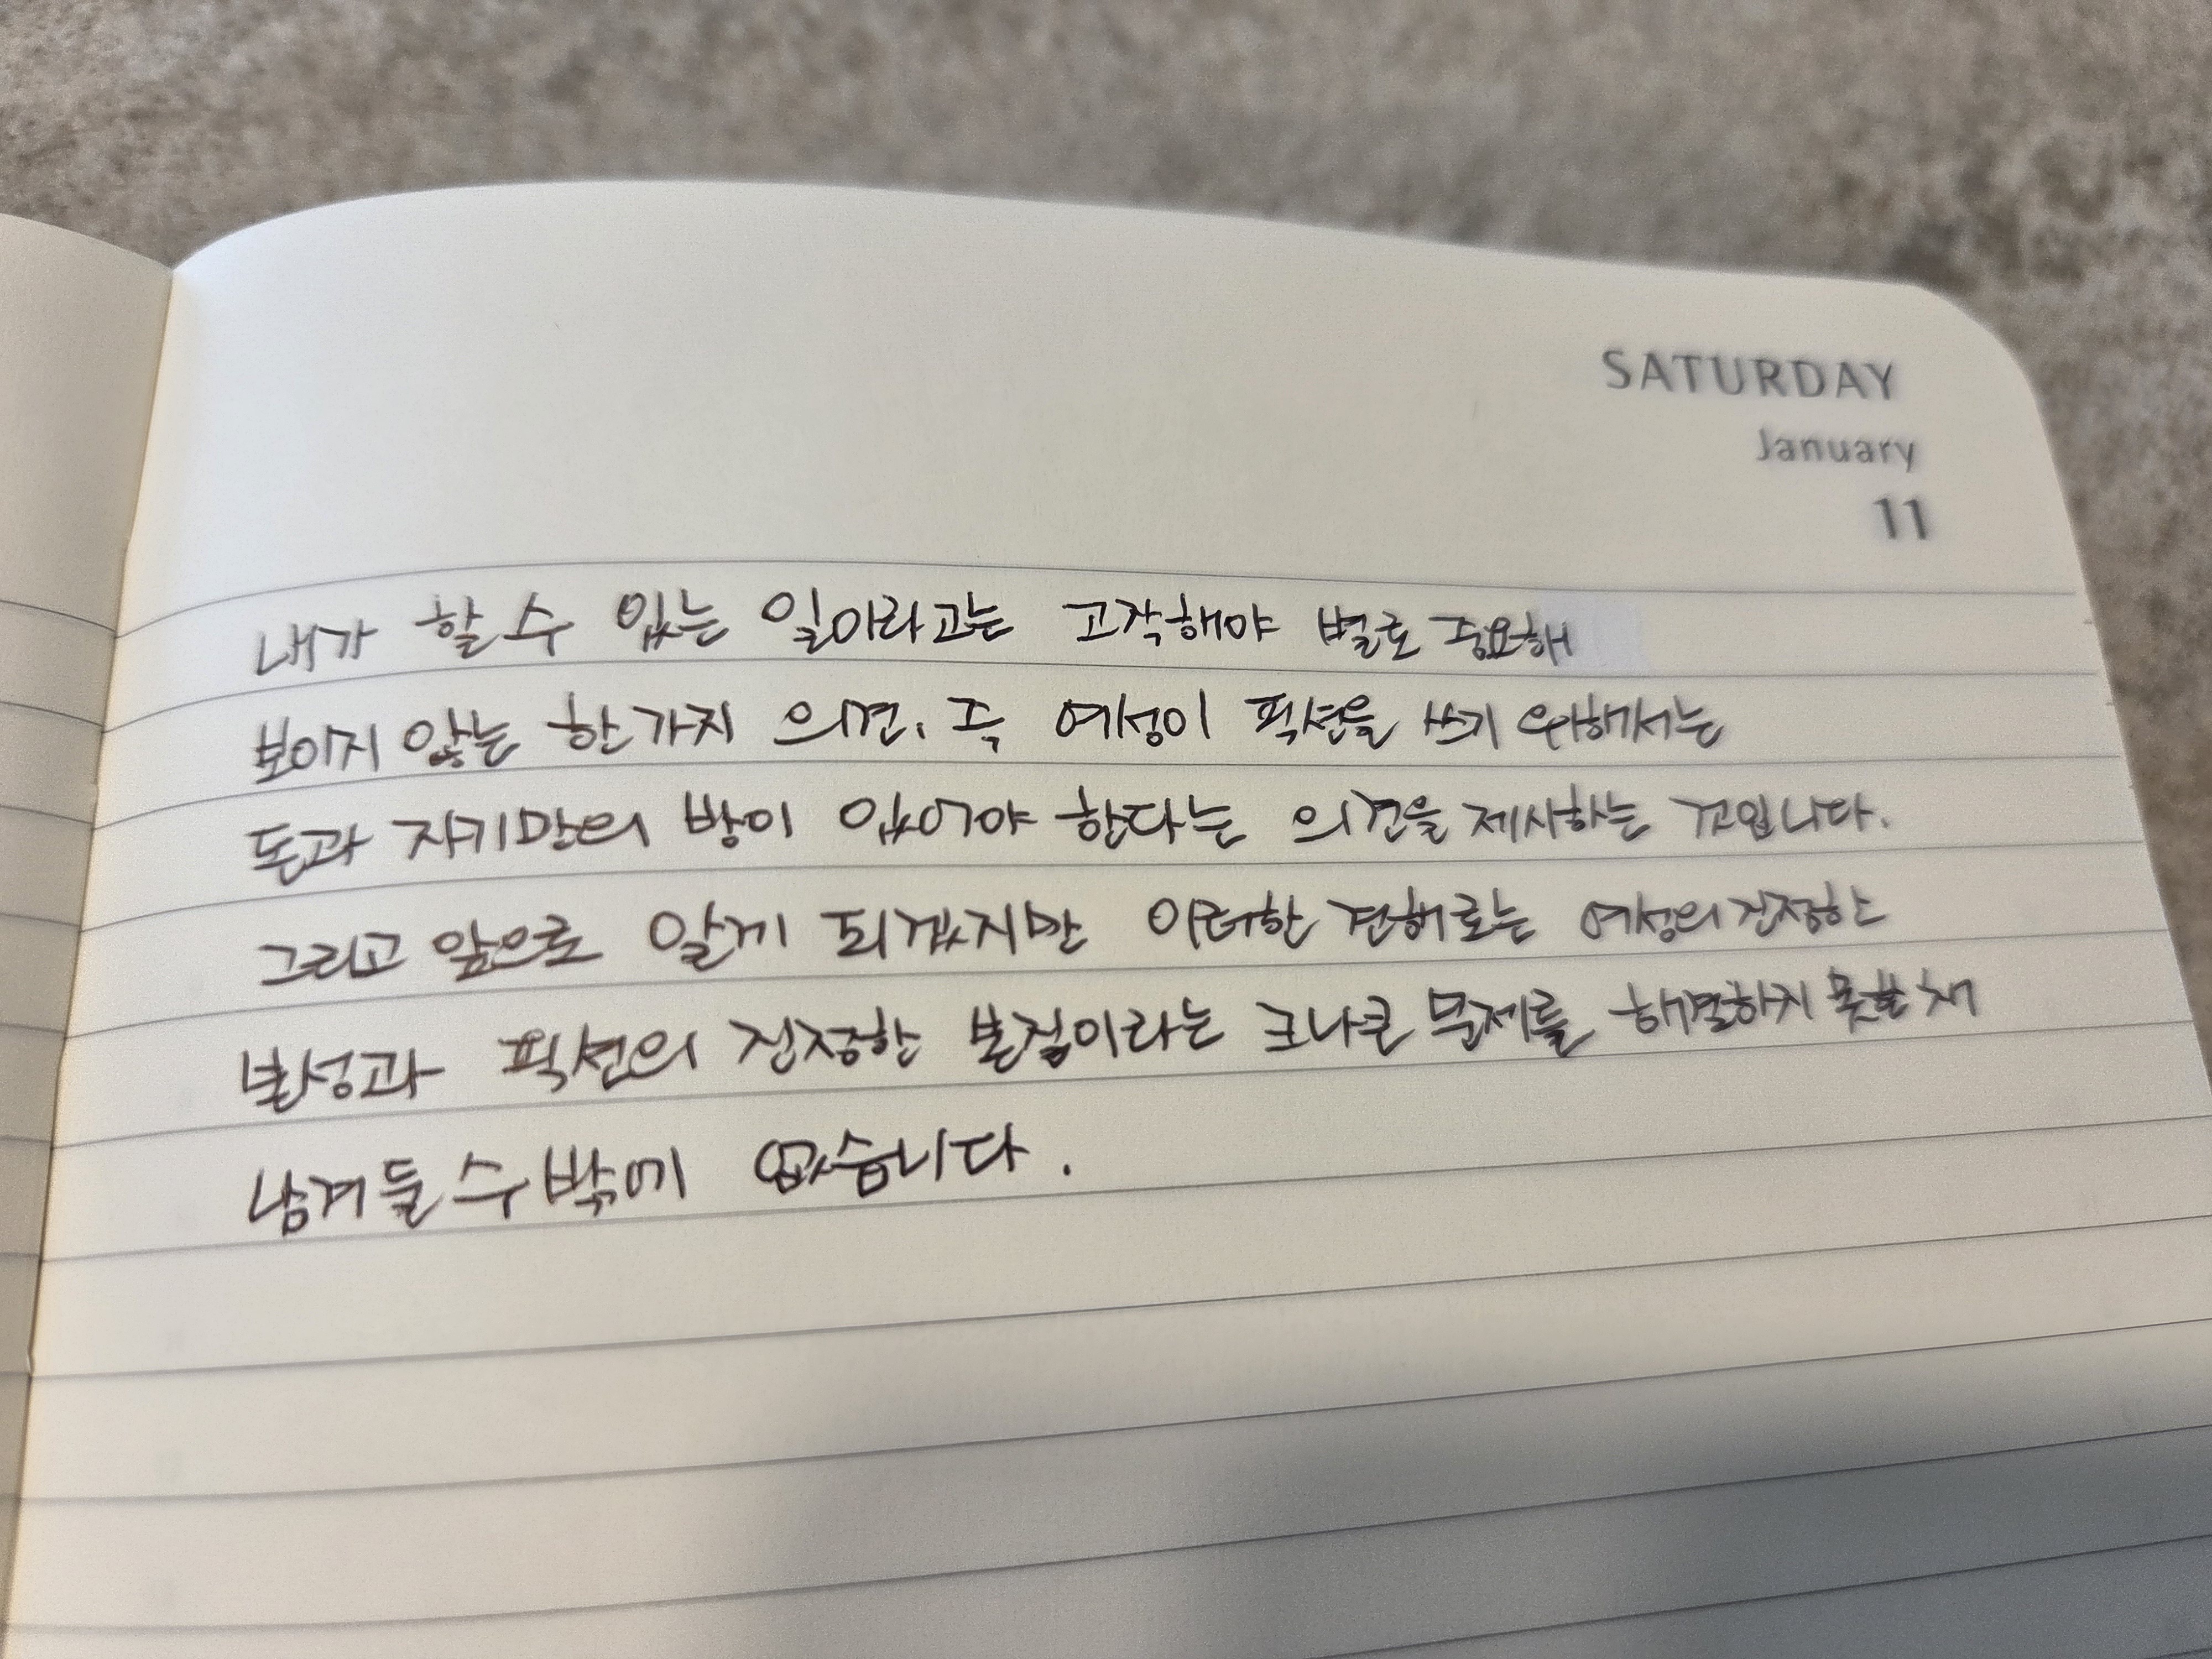 SATURDAY
January
11
내가 할 수 있는 일이라고는 고작해야 별로 중요해
보이지 않는 한가지 의견, 즉 여성이 픽션을 쓰기 위해서는
돈과 자기만의 방이 있어야 한다는 의견을 제시하는 것입니다.
그리고 앞으로 알게 되겠지만 이러한 견해로는 여성의 진정한
본성과 픽션의 진정한 본점이라는 크나큰 문제를 해결하지 못한 채
남겨둘 수밖에 없습니다.